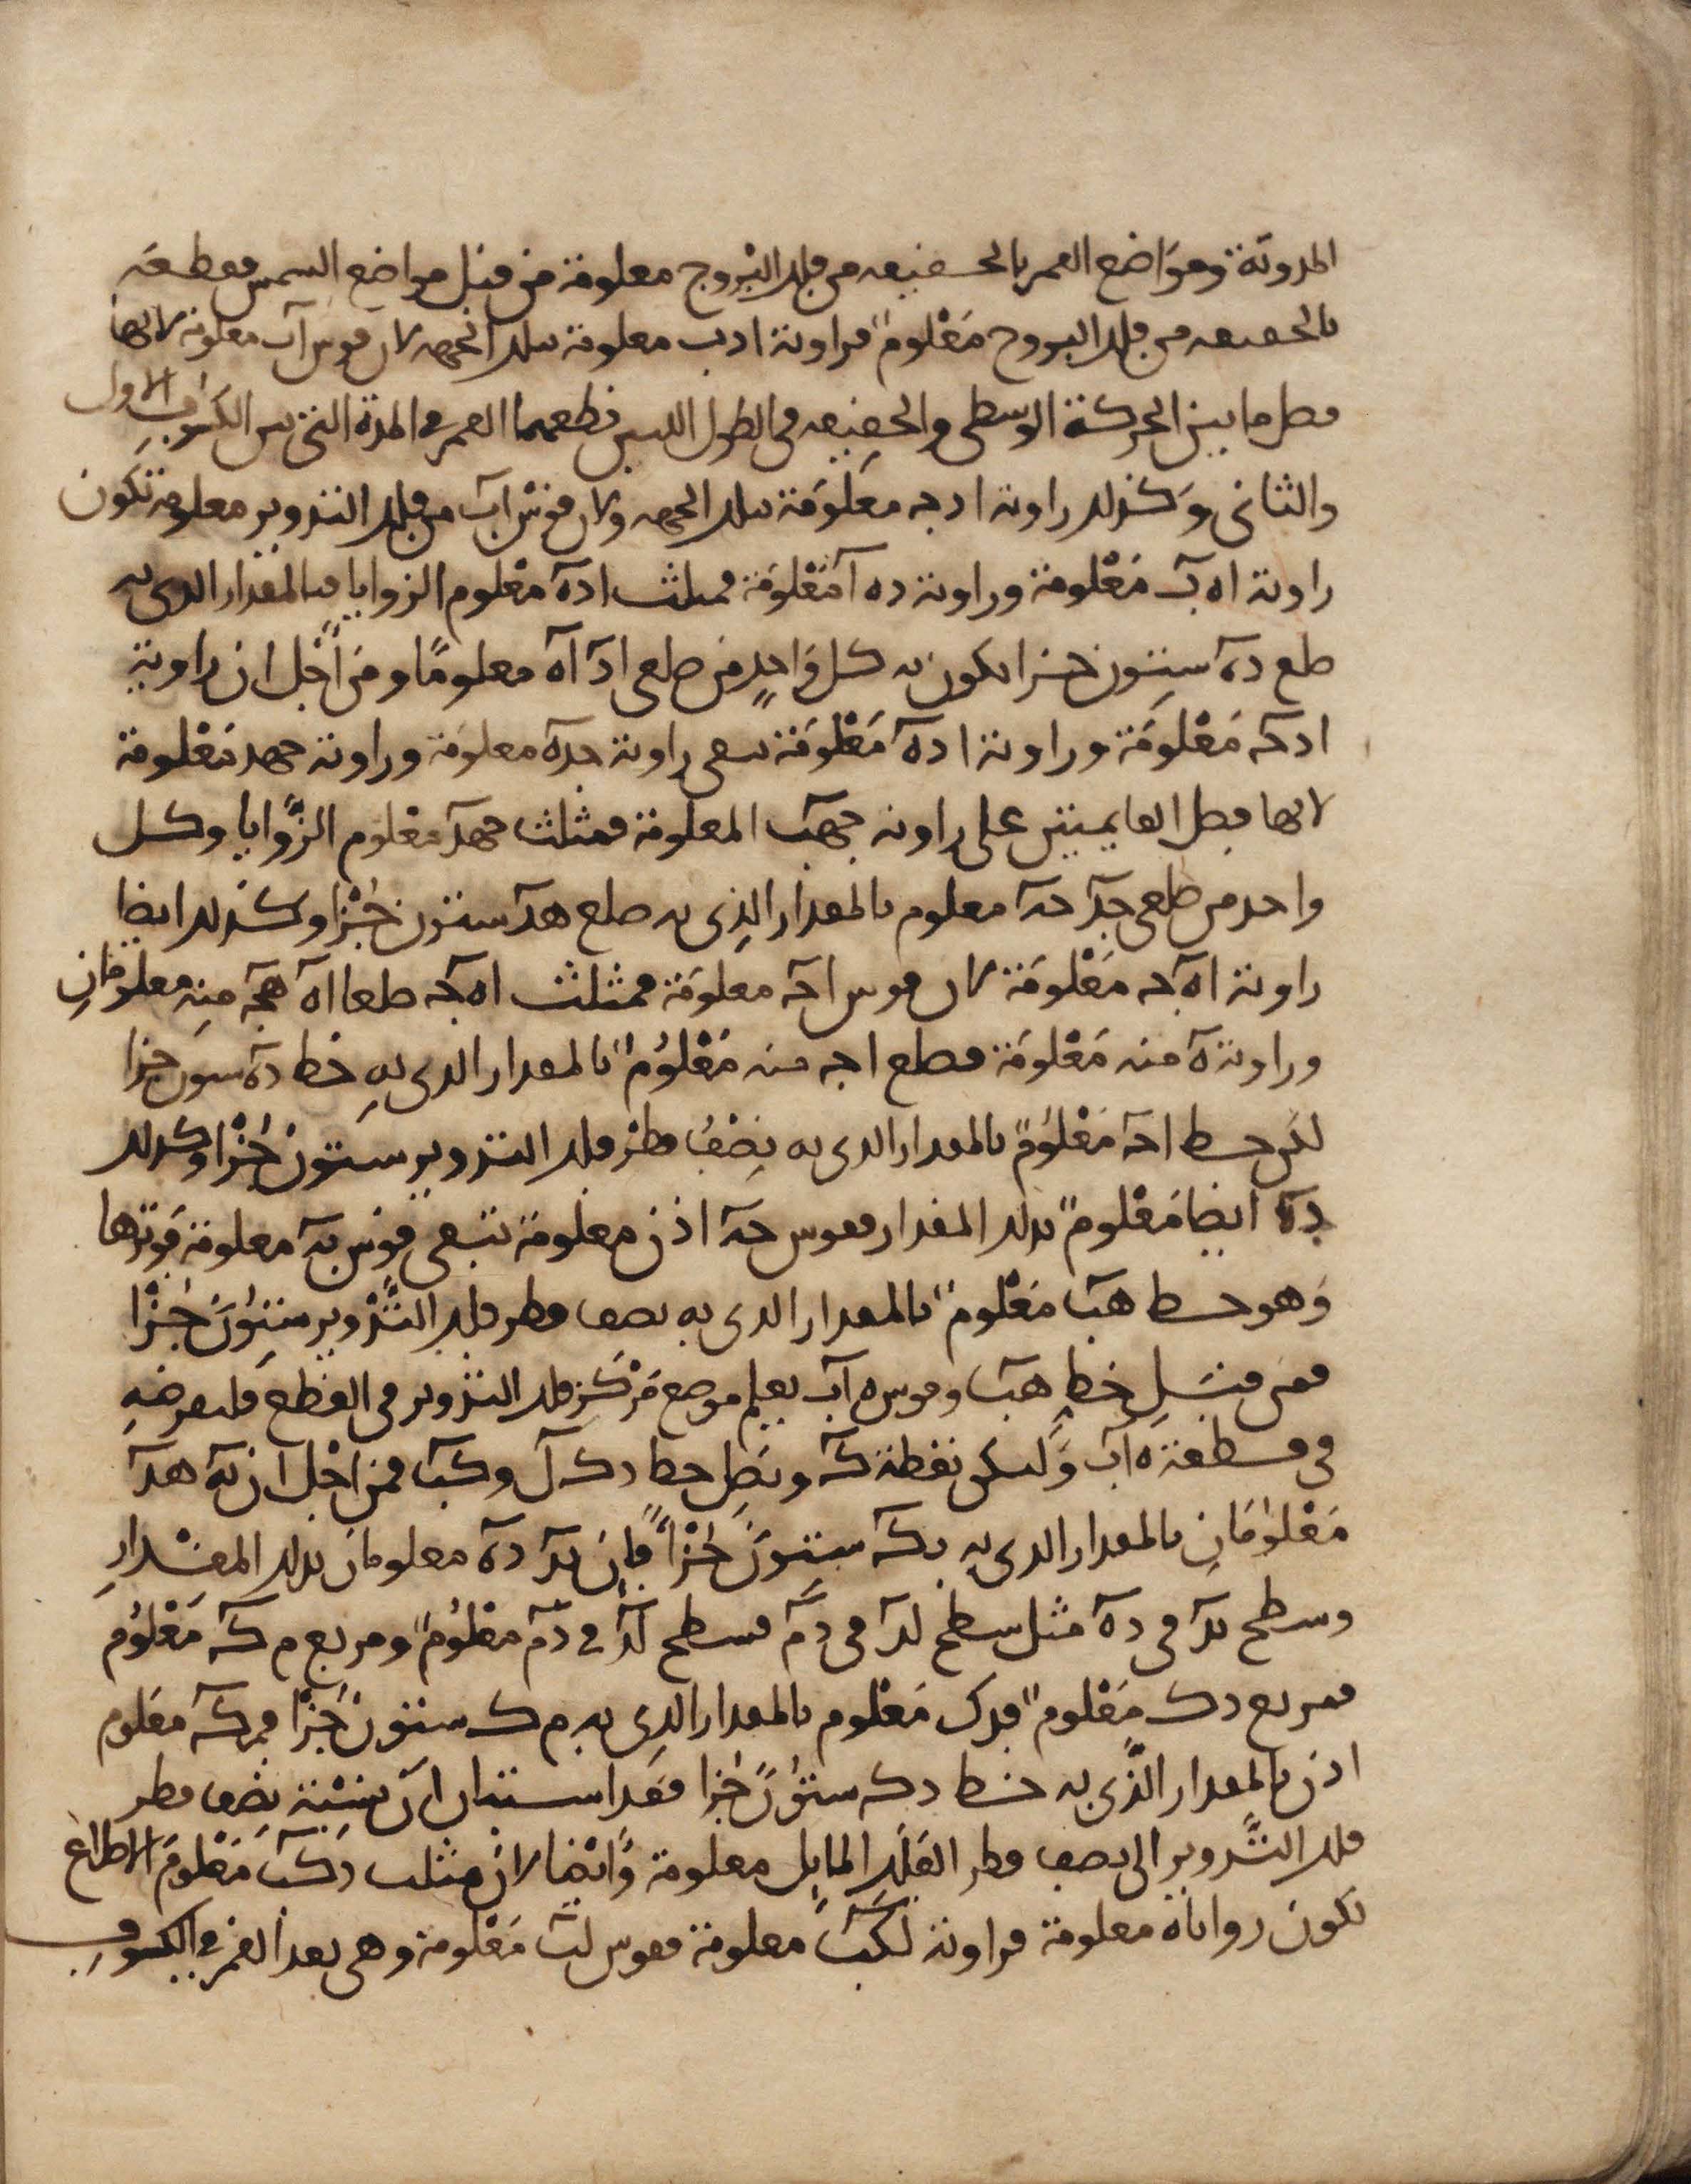 المدونة ومواضع القمر بالحقيقة من فلك البروج معلومة من قبل مواضع الشمس فقطعه
بالحقيقة من فلك البروج معلوم فزاوية ادب معلومة بتلك الجهة لان قوس اب معلومة لانها
فضل ما بين الحركة الوسطى والحقيقة في الطول اللتين قطعهما القمر في المدة التي بين الكسوف الاول
والثاني وكذلك زاوية ادجه معلومة بتلك الجهة ولان قوس اب من فلك التدوير معلومة تكون
زاوية اه ب معلومة وزاوية ده ا معلومة فمثلث اده معلوم الزوايا فبالمقدار الذي به
ضلع ده ستون جزا يكون به كل واحد من ضلعي اد اه معلوما ومن اجل ان زاوية
ادجه معلومة وزاوية اده معلومة تبقى زاوية جده معلومة وزاوية جهد معلومة
لانها فضل القايمتين على زاوية جهب المعلومة فمثلث جهد معلوم الزوايا وكل
واحد من ضلعي جد جه معلوم بالمقدار الذي به ضلع هد ستون جزا وكذلك ايضا
زاوية اه جه معلومة لان قوس اجه معلومة فمثلث اه جه ضلعا اه هجه منه معلومان
وزاوية ه منه معلومة فضلع اجه منه معلوم بالمقدار الذي به خط ده ستون جزا
لكن خط اجه معلوم بالمقدار الذي به نصف قطر فلك التدوير ستون جزا وكذلك
ده ايضا معلوم بذلك المقدار فقوس جه اذن معلومة تبقى قوس به معلومة فوترها
وهو خط هب معلوم بالمقدار الذي به نصف قطر فلك التدوير ستون جزا
فمن قبل خط هب وقوس ه اب يعلم موضع مركز فلك التدوير في القطع فليفرضه
في قطعة ه اب وليكن نقطة كه ونصل خطا دكه ل وكب فمن اجل ان به هد
معلومان بالمقدار الذي به بكه ستون جزا فان بد ده معلومان بذلك المقدار
وسطح بد في ده مثل سطح لد في دم فسطح لد في دم معلوم ومربع م كه معلوم
فمربع دك معلوم فدك معلوم بالمقدار الذي به م ك ستون جزا فمكه معلوم
اذن بالمقدار الذي به خط دكه ستون جزا فقد استبان ان نسبة نصف قطر
فلك التدوير الى نصف قطر الفلك المايل معلومة وايضا لان مثلث دكب معلوم الاضلاع
تكون زواياه معلومة فزاوية لكب معلومة فقوس لب معلومة وهي بعد القمر في الكسوف